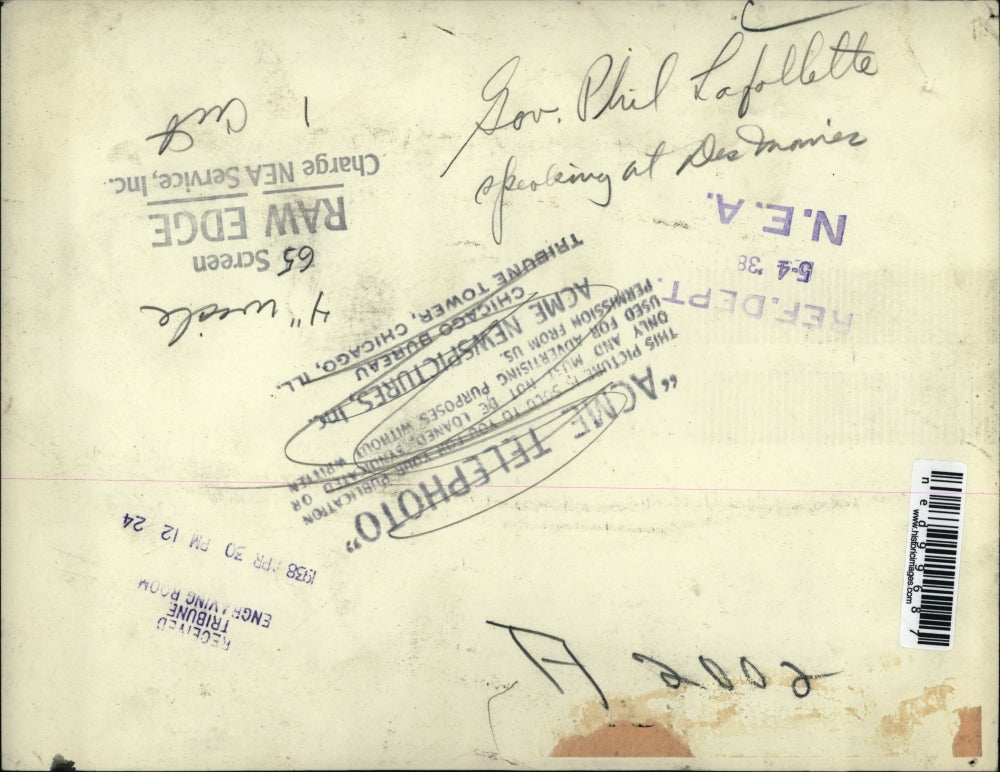 Gov. Phil Lafollette
speaking at Des Moines
N.E.A.
5-4 '38
REF.DEPT.
1
Cut
Charge NEA Service, Inc.
RAW EDGE
65 Screen
4" wide
"ACME TELEPHOTO"
THIS PICTURE IS SOLD TO YOU FOR YOUR PUBLICATION
ONLY AND MUST NOT BE LOANED, SYNDICATED OR
USED FOR ADVERTISING PURPOSES WITHOUT WRITTEN
PERMISSION FROM US.
ACME NEWSPICTURES, Inc.
CHICAGO BUREAU
TRIBUNE TOWER, CHICAGO, ILL.
1938 APR 30 PM 12 24
RECEIVED
TRIBUNE
ENGRAVING ROOM
www.historicimages.com
ned99687